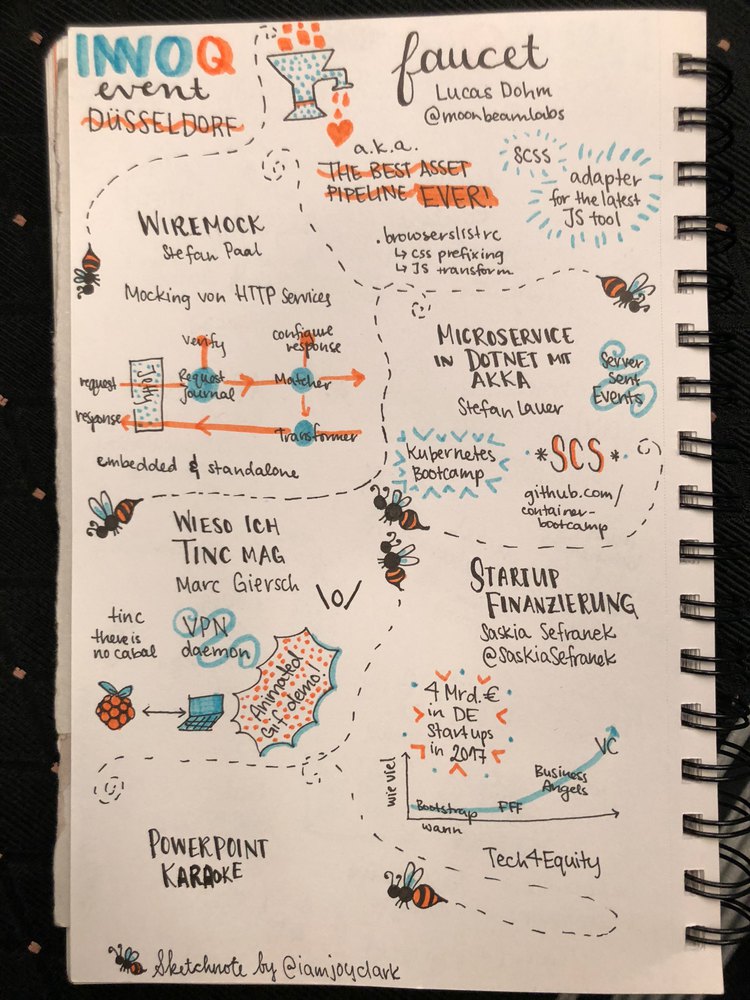 INNOQ
event
DÜSSELDORF
faucet
Lucas Dohm
@moonbeamlabs
a.k.a.
THE BEST ASSET
PIPELINE EVER!
SCSS
adapter
for the latest
JS tool
.browserslistrc
↳ css prefixing
↳ JS transform
WIREMOCK
Stefan Paal
Mocking von HTTP Services
verify
configure
response
request
Jetty
Request
Journal
Matcher
response
Transformer
embedded & standalone
MICROSERVICE
IN DOTNET MIT
AKKA
Stefan Lauer
Server
Sent
Events
Kubernetes
Bootcamp
*SCS*
github.com/
container-
bootcamp
WIESO ICH
TINC MAG
Marc Giersch
\o/
tinc
there is
no cabal
VPN
daemon
Animated
Gif demo!
STARTUP
FINANZIERUNG
Saskia Sefranek
@SaskiaSefranek
4 Mrd. €
in DE
Startups
in 2017
wie viel
Bootstrap
FFF
Business
Angels
VC
wann
Tech4Equity
POWERPOINT
KARAOKE
Sketchnote by @iamjoyclark